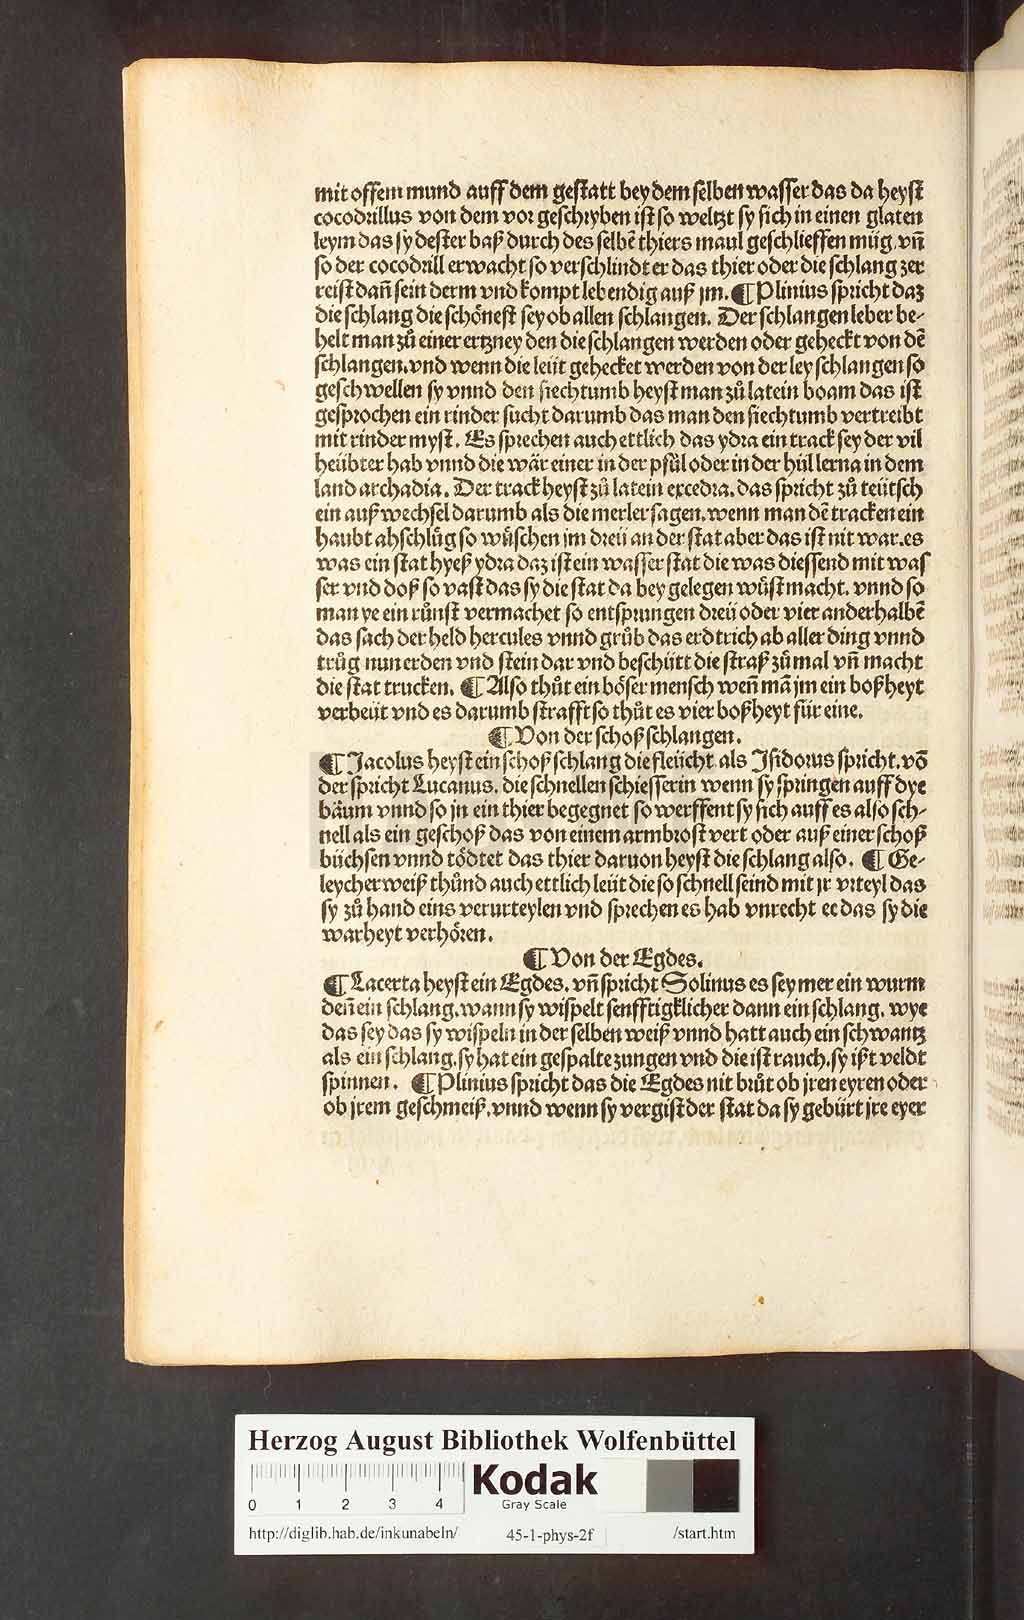 mit offem mund auff dem gestatt bey dem selben wasser das da heyst
cocodrillus von dem vor geschryben ist so weltzt sy sich in einen glaten
leym das sy dester baß durch des selbē thiers maul geschlieffen müg. vn̄
so der cocodrill erwacht so verschlindt er das thier oder die schlang zer
reist dan̄ sein derm vnd kompt lebendig auß jm. ¶ Plinius spricht daz
die schlang die schönest sey ob allen schlangen. Der schlangen leber be⸗
helt man zů einer ertzney den die schlangen werden oder geheckt von dē
schlangen. vnd wenn die leüt gehecket werden von der ley schlangen so
geschwellen sy vnnd den siechtumb heyst man zů latein boam das ist
gesprochen ein rinder sucht darumb das man den siechtumb vertreibt
mit rinder myst. Es sprechen auch ettlich das ydra ein track sey der vil
heübter hab vnnd die wär einer in der pfůl oder in der hüll lerna in dem
land archadia. Der track heyst zů latein excedra. das spricht zů teütsch
ein auß wechsel darumb als die merler sagen. wenn man dē tracken ein
haubt abschlüg so wůschen jm dreü an der stat aber das ist nit war. es
was ein stat hyeß ydra daz ist ein wasser stat die was diessend mit was
ser vnd doß so vast das sy die stat da bey gelegen wůst macht. vnnd so
man ye ein růnst vermachet so entsprungen dreü oder vier anderhalbē
das sach der held hercules vnnd grůb das erdtrich ab aller ding vnnd
trůg nun erden vnd stein dar vnd beschütt die straß zů mal vn̄ macht
die stat trucken. ¶ Also thůt ein böser mensch wen̄ mā jm ein boßheyt
verbeüt vnd es darumb strafft so thůt es vier boßheyt für eine.
¶ Von der schoß schlangen.
¶ Jacolus heyst ein schoß schlang die fleücht als Jsidorus spricht. vō
der spricht Lucanus. die schnellen schiesserin wenn sy springen auff dye
bäum vnnd so jn ein thier begegnet so werffent sy sich auff es also sch⸗
nell als ein geschoß das von einem armbrost vert oder auß einer schoß
büchsen vnnd tödtet das thier daruon heyst die schlang also. ¶ Ge⸗
leycher weiß thůnd auch ettlich leüt die so schnell seind mit jr vrteyl das
sy zů hand eins verurteylen vnd sprechen es hab vnrecht ee das sy die
warheyt verhören.
¶ Von der Egdes.
¶ Lacerta heyst ein Egdes. vn̄ spricht Solinus es sey mer ein wurm
den̄ ein schlang. wann sy wispelt senfftigklicher dann ein schlang. wye
das sey das sy wispeln in der selben weiß vnnd hatt auch ein schwantz
als ein schlang. sy hat ein gespalte zungen vnd die ist rauch. sy ißt veldt
spinnen. ¶ Plinius spricht das die Egdes nit brůt ob jren eyren oder
ob jrem geschmeiß. vnnd wenn sy vergist der stat da sy gebürt jre eyer
Herzog August Bibliothek Wolfenbüttel
0 1 2 3 4
Kodak
Gray Scale
http://diglib.hab.de/inkunabeln/ 45-1-phys-2f /start.htm